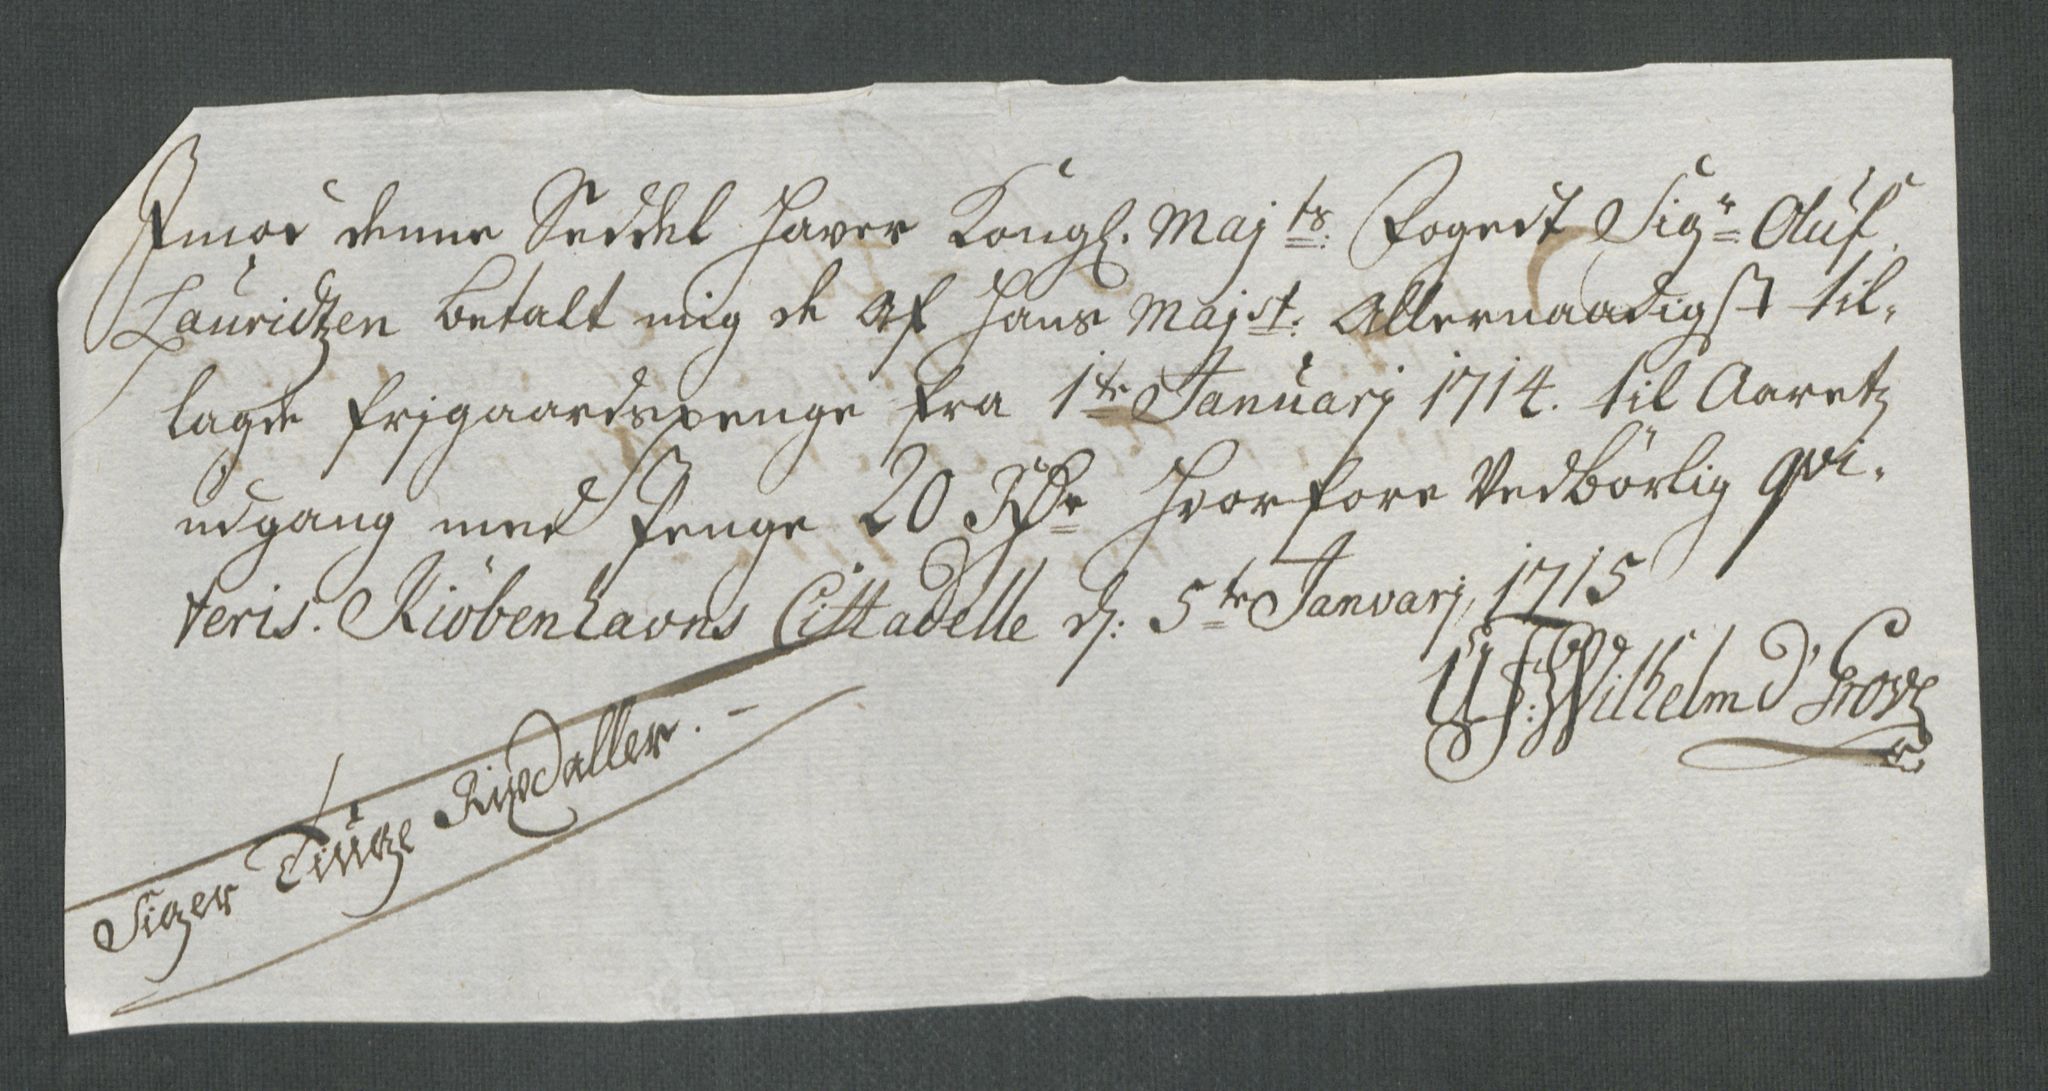 Imod denne Seddel haver Kongl. Majts. Fogedt Sigr Oluf
Lauridtzen betalt mig de af Hans Majst. Allernaadigst til-
lagde frjgaardspenge fra 1te Januarj 1714. til Aaretz
udgang med Penge 20 Rdr hvorfore Vedbörlig qvi-
teris. Kiöbenhavns Cittadelle d: 5te Januarj 1715
U: F: Wilhelm d'
Siger Tiuge Rixdaller. -